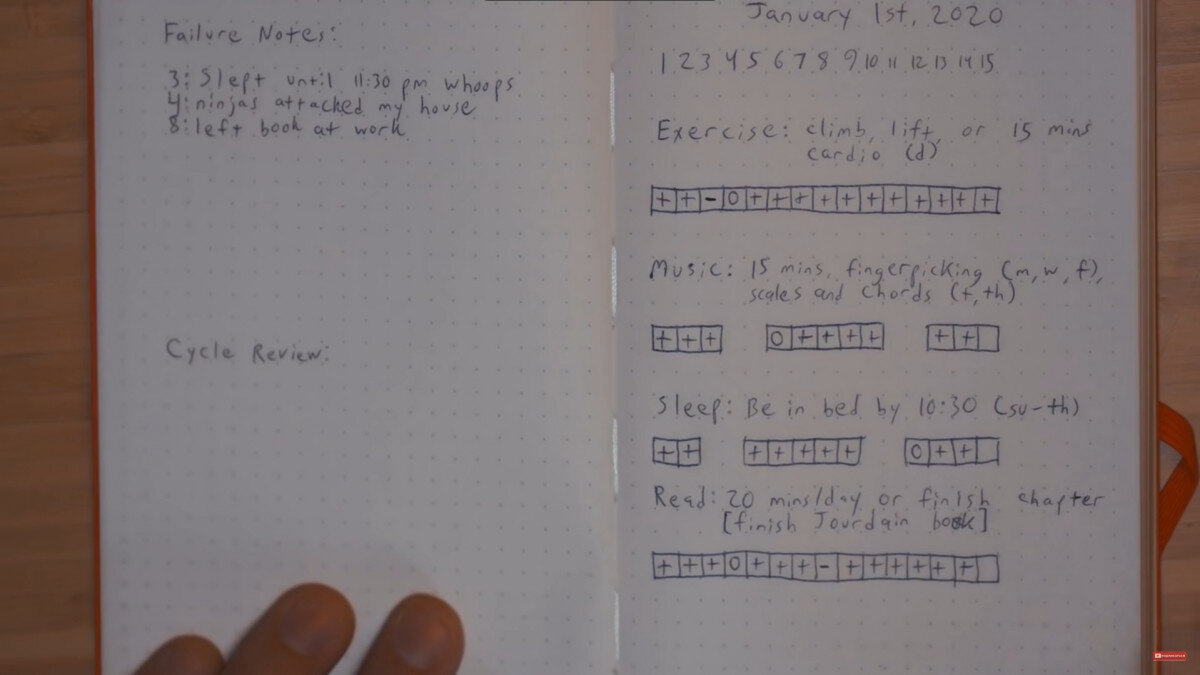 Failure Notes:
3: Slept until 11:30 pm whoops
4: ninjas attacked my house
8: left book at work
Cycle Review:
January 1st, 2020
1 2 3 4 5 6 7 8 9 10 11 12 13 14 15
Exercise: climb, lift, or 15 mins
cardio (d)
+ + - O + + + + + + + + + + +
Music: 15 mins, fingerpicking (m, w, f),
scales and chords (t, th)
+ + + O + + + + + +
Sleep: Be in bed by 10:30 (su-th)
+ + + + + + + O + +
Read: 20 mins/day or finish chapter
[finish Jourdain book]
+ + + O + + + - + + + + + +